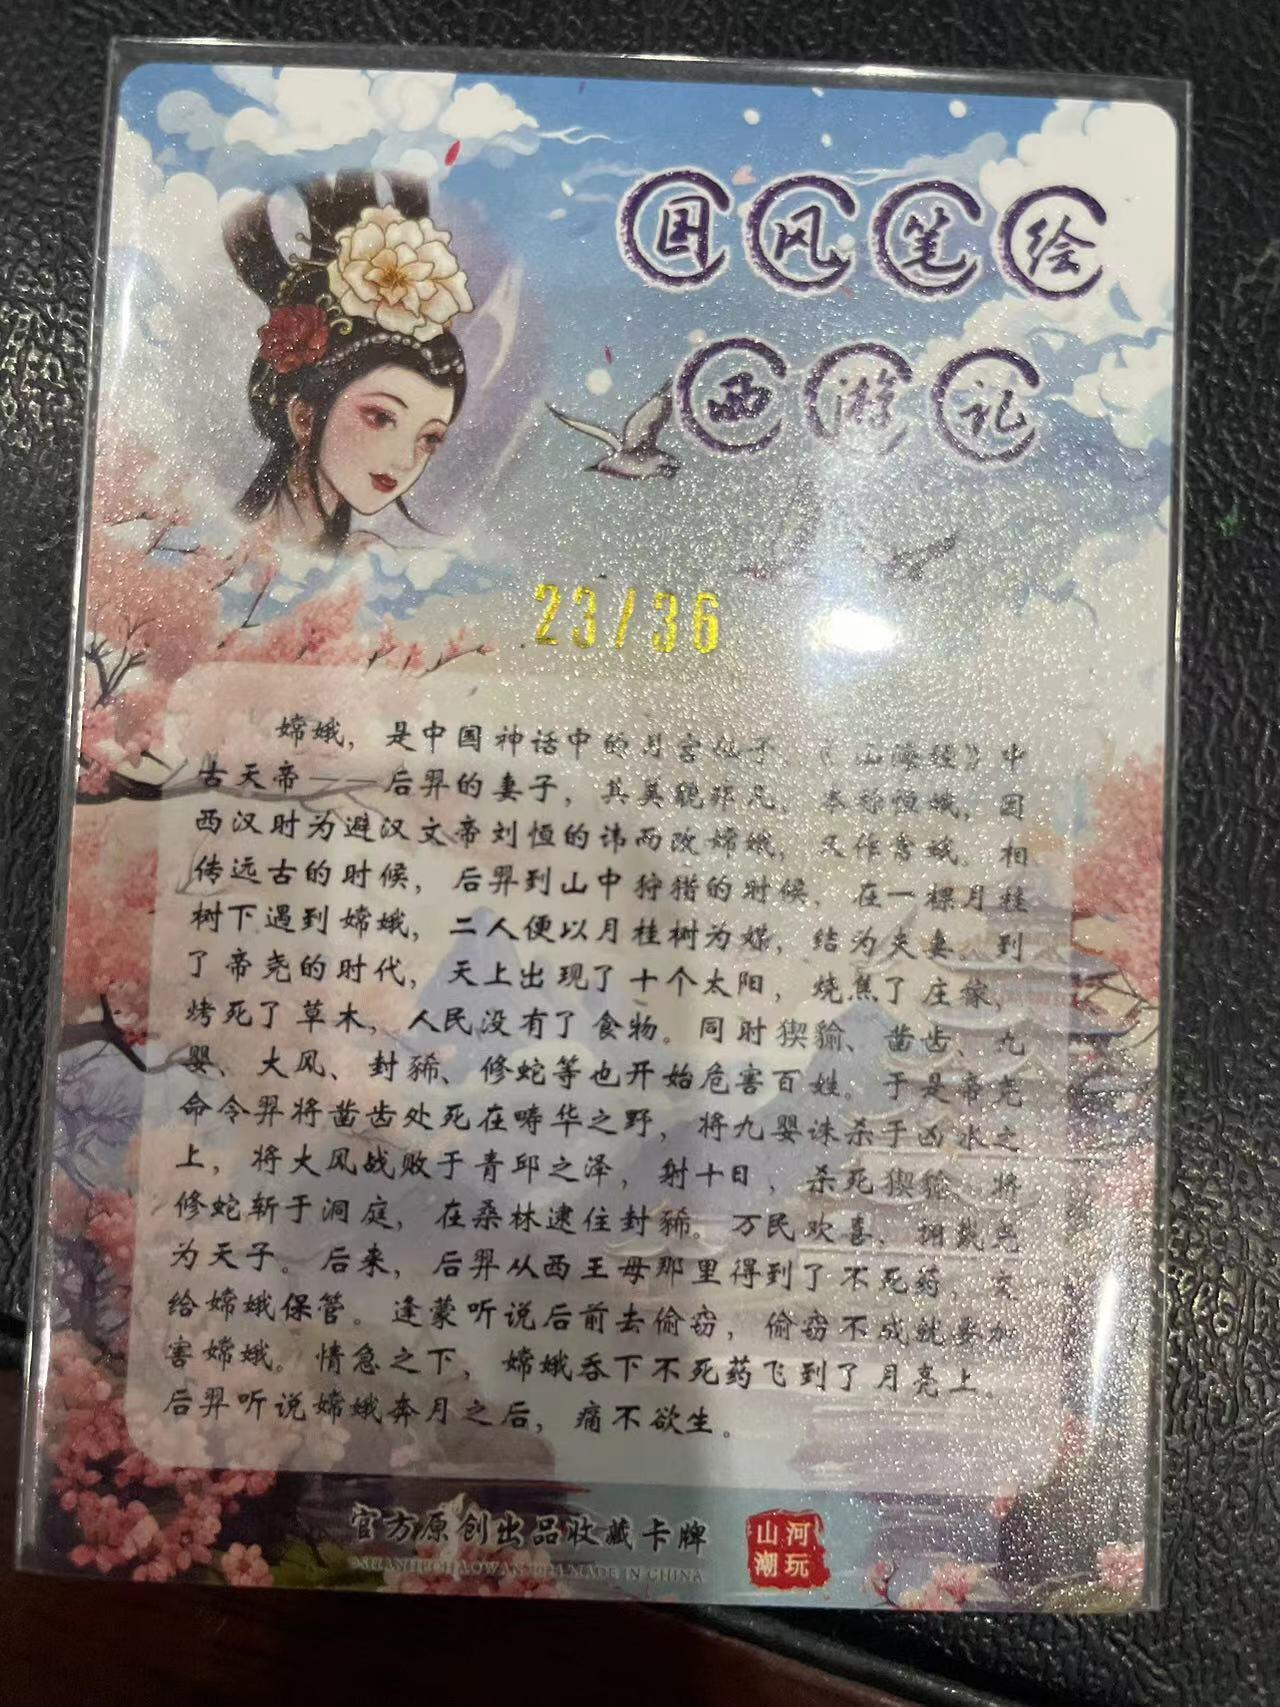 国风笔绘
西游记
23/36
嫦娥，是中国神话中的月宫仙子，《山海经》中
古天帝——后羿的妻子，其美貌非凡，本称恒娥，因
西汉时为避汉文帝刘恒的讳而改嫦娥，又作常娥。相
传远古的时候，后羿到山中狩猎的时候，在一棵月桂
树下遇到嫦娥，二人便以月桂树为媒，结为夫妻。到
了帝尧的时代，天上出现了十个太阳，烧焦了庄稼，
烤死了草木，人民没有了食物。同时猰貐、凿齿、九
婴、大风、封豨、修蛇等也开始危害百姓。于是帝尧
命令羿将凿齿处死在畴华之野，将九婴诛杀于凶水之
上，将大风战败于青邱之泽，射十日，杀死猰貐，将
修蛇斩于洞庭，在桑林逮住封豨。万民欢喜，拥戴尧
为天子。后来，后羿从西王母那里得到了不死药，交
给嫦娥保管。逢蒙听说后前去偷窃，偷窃不成就要加
害嫦娥。情急之下，嫦娥吞下不死药飞到了月亮上。
后羿听说嫦娥奔月之后，痛不欲生。
官方原创出品收藏卡牌
©SHANHECHAOWAN 2024 MADE IN CHINA
山河
潮玩